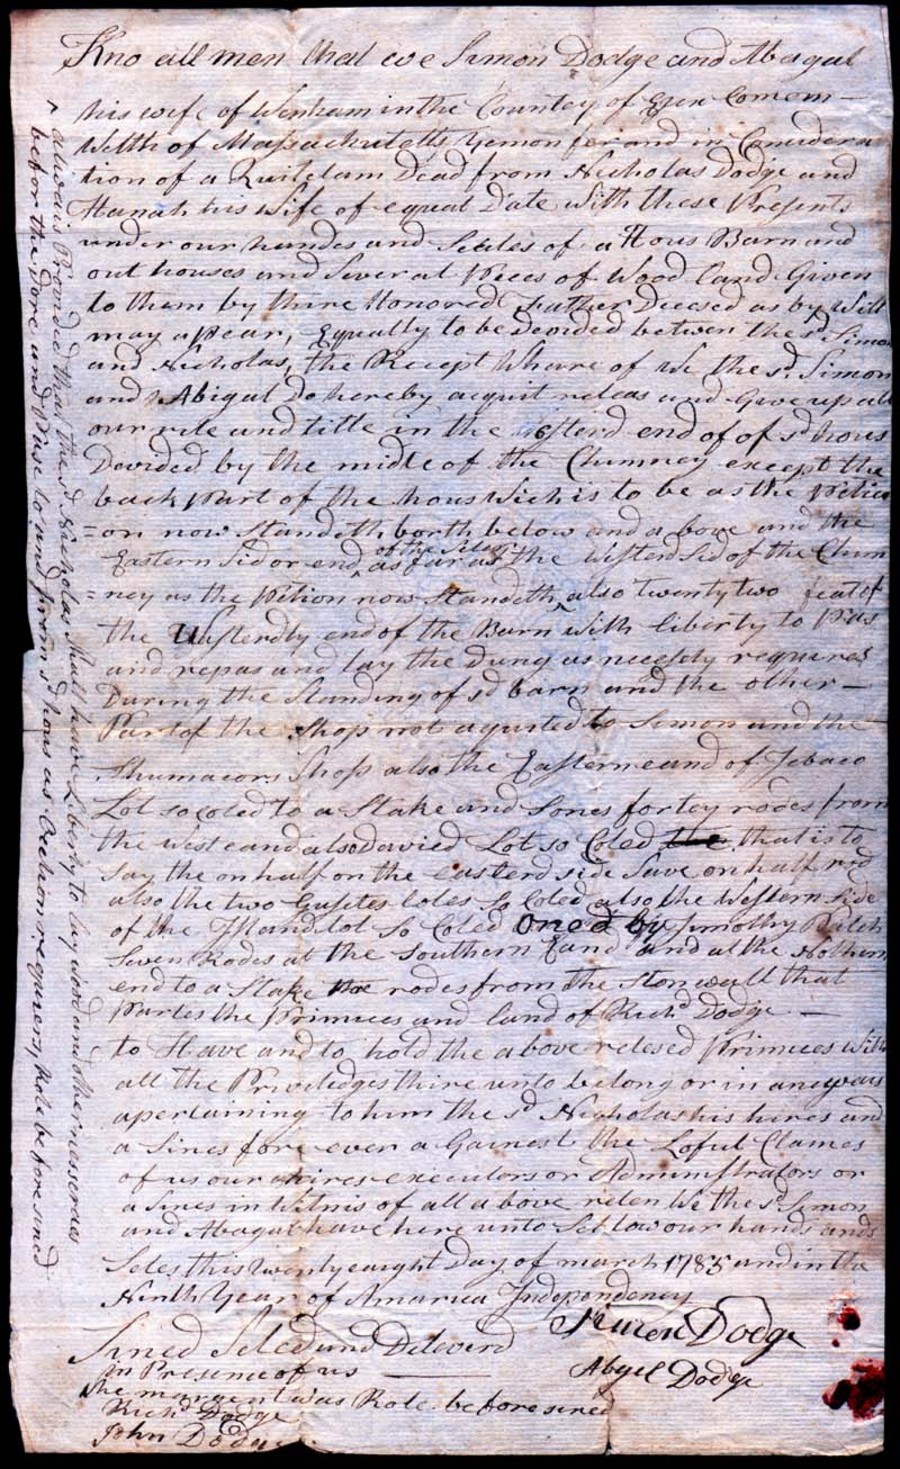 Kno all men that we Simon Dodge and Abagal
his wife of Wenham in the Countey of Esex Comom
Welth of Massachutetts Yemon for and in Considera
tion of a Quitclam Dead from Nicholas Dodge and
Hanah his wife of equal Date with these Presents
under our handes and Seeles of a Hous Barn and
out houses and Several Peces of Wood land Given
to them by thire Honored Father Decesed as by Will
may apear, Equally to be devided between the sd Simon
and Nicholas, the Recept Whare of we the sd. Simon
and Abigal Do hereby aequit releas and Give up all
our rite and title in the Westerd end of of sd hous
Devided by the midle of the Chimney except the
back part of the hous Wich is to be as the Petici
=on now Standeth borth below and a bove and the
Eastern Sid or end of the Seler as far as the Westerd Sid of the Chim
=ney as the Petion now Standeth ^ also twenty two feat of
the Westerdly end of the Barn with liberty to Pas
and repas and lay the Dung as necesety requires
During the Standing of sd barn and the other —
Part of the Shop not agusted to Simon and the
Shumacors Shop also the Eastern eand of Jebaco
Lot so coled to a Stake and Stones fortey rodes from
the west eand also davied Lot so Coled the that is to
say the on half on the easterd side Save on half rod
also the two Gusites lotes so Coled also the Western Side
of the Island lot so Coled oned by Timothy Patch
Seven Rodes at the Southern Eand and at the Nothern
end to a Stake rodes from the Ston wall that
Partes the Primices and land of Richd Dodge —
to Have and to hold the above relesed Primices With
all the Priveledges thire unto belong or in aneywais
apertaining to him the sd Nicholas his hires and
a Sines fore ever a Gainest the Loful Clames
of us our hires executors or Adminnistrators or
a Sines in Witnis of all a bove reten We the sd Simon
and Abagal have here unto Set tow our hands and
Seles this twenty eaight Day of march 1785 and in the
Ninth Year of Amarica Independency
Simon Dodge
Abgel Dodge
Sined Seled and Deleverd
in Presence of us
the margent was Rote before sined
Richd Dodge
John Dodge
^ alwais Provided that the sd Nicholas Shall have Liberty to lay wood and other nesserais
befor the Dore and Pase to and from sd hous as Ocasion requiers, Rote before sined